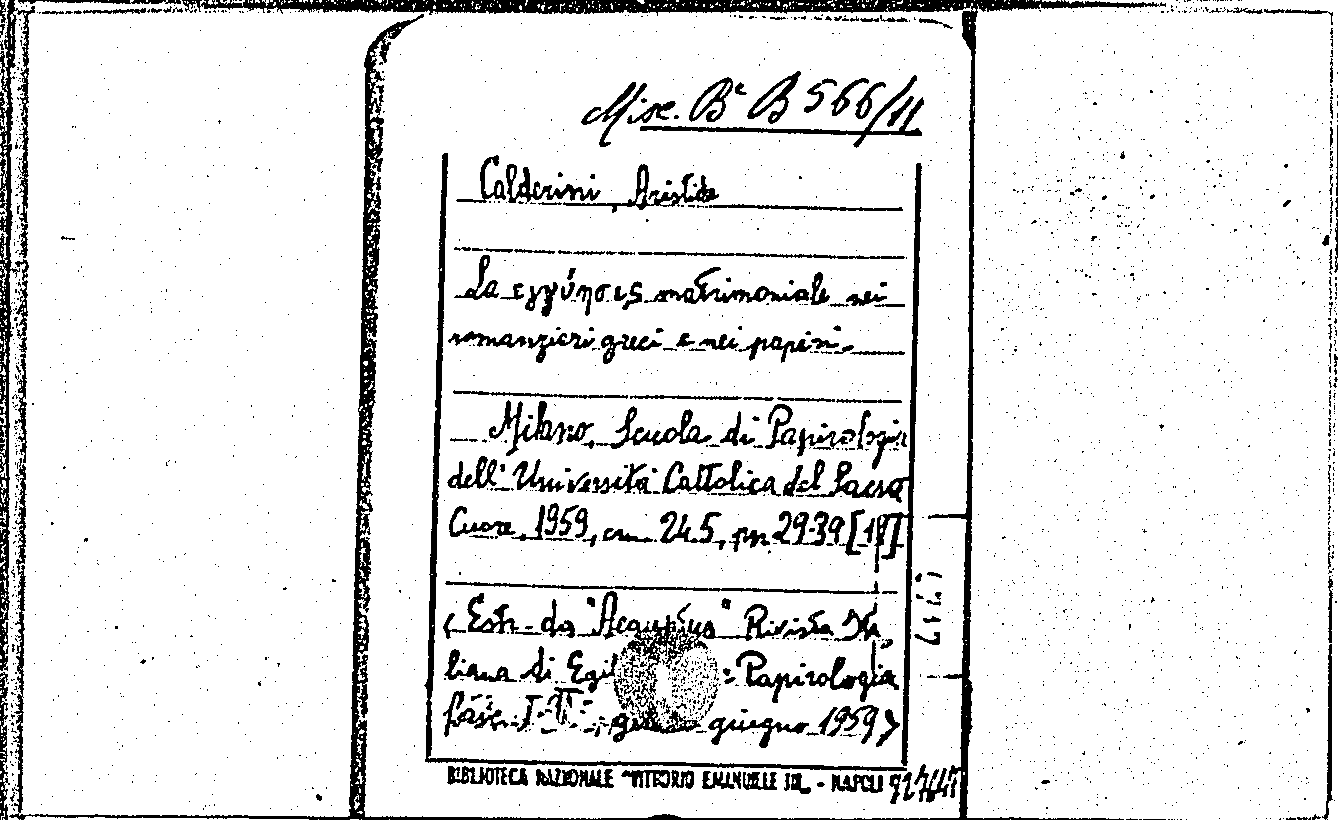 Misc. Bª B 566/11
Calderini, Aristide
La εγγύησις matrimoniale nei
romanzieri greci e nei papiri.
Milano, Scuola di Papirologia
dell'Università Cattolica del Sacro
Cuore, 1959, cm. 24.5, pp. 29-39 [11]
(Estr. da "Aegyptus" Rivista Ita
liana di Egi : Papirologia
fasc. I-II, giugno 1959)
BIBLIOTECA NAZIONALE "VITTORIO EMANUELE III" - NAPOLI